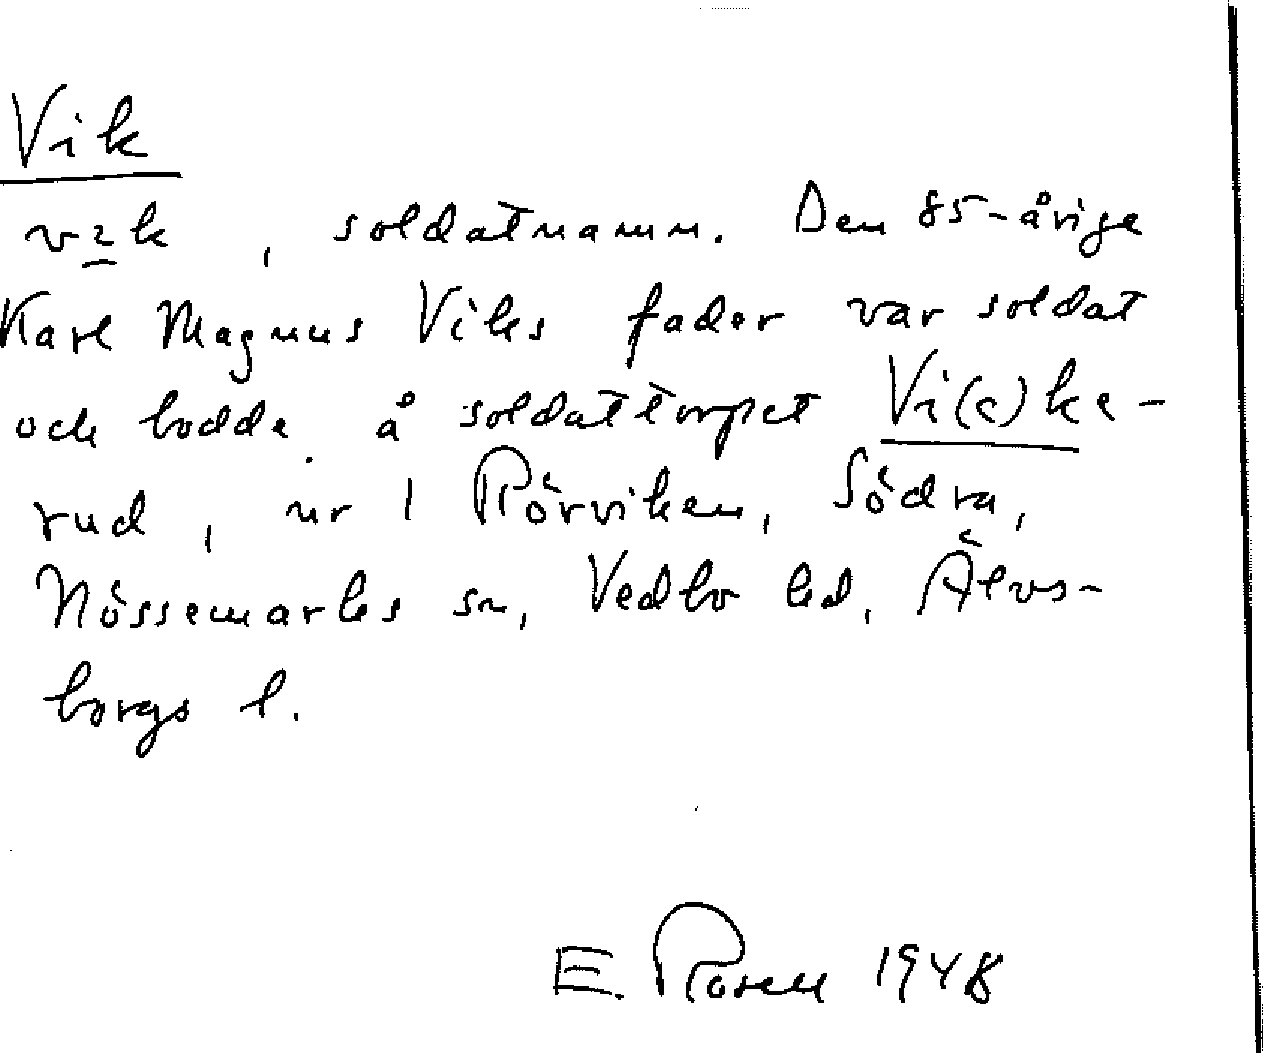 Vik
vɩk, soldatnamn. Den 85-årige
Karl Magnus Viks fader var soldat
och bodde å soldattorpet Vi(c)ke-
rud, nr 1 Rörviken, Södra,
Nössemarks sn, Vedbo hd, Älvs-
borgs l.
E. Rosell 1948